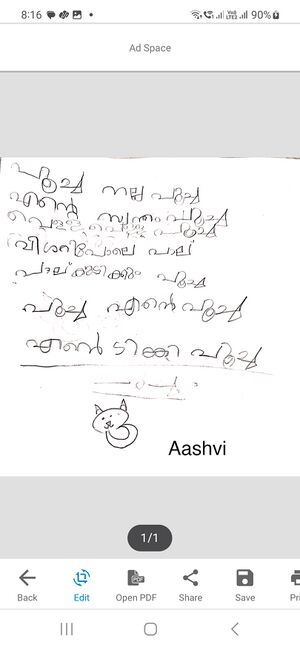 8:16
90%
Ad Space
പൂച്ച നല്ല പൂച്ച
എന്റെ സ്വന്തം പൂച്ച
പൂച്ച
പോലെ പാല്
പാല് കുടിക്കും പൂച്ച
പൂച്ച എന്റെ പൂച്ച
എന്റെ ടിങ്കി പൂച്ച
Aashvi
1/1
Back Edit Open PDF Share Save Pri